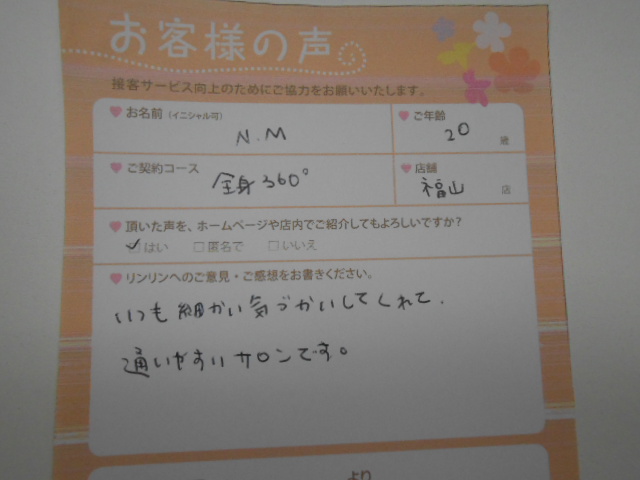 お客様の声
接客サービス向上のためにご協力をお願いいたします。
お名前(イニシャル可)
N.M
ご年齢
20 歳
ご契約コース
全身360°
店舗
福山 店
頂いた声を、ホームページや店内でご紹介してもよろしいですか?
はい 匿名で いいえ
リンリンへのご意見・ご感想をお書きください。
いつも細かい気づかいしてくれて、
通いやすいサロンです。
より